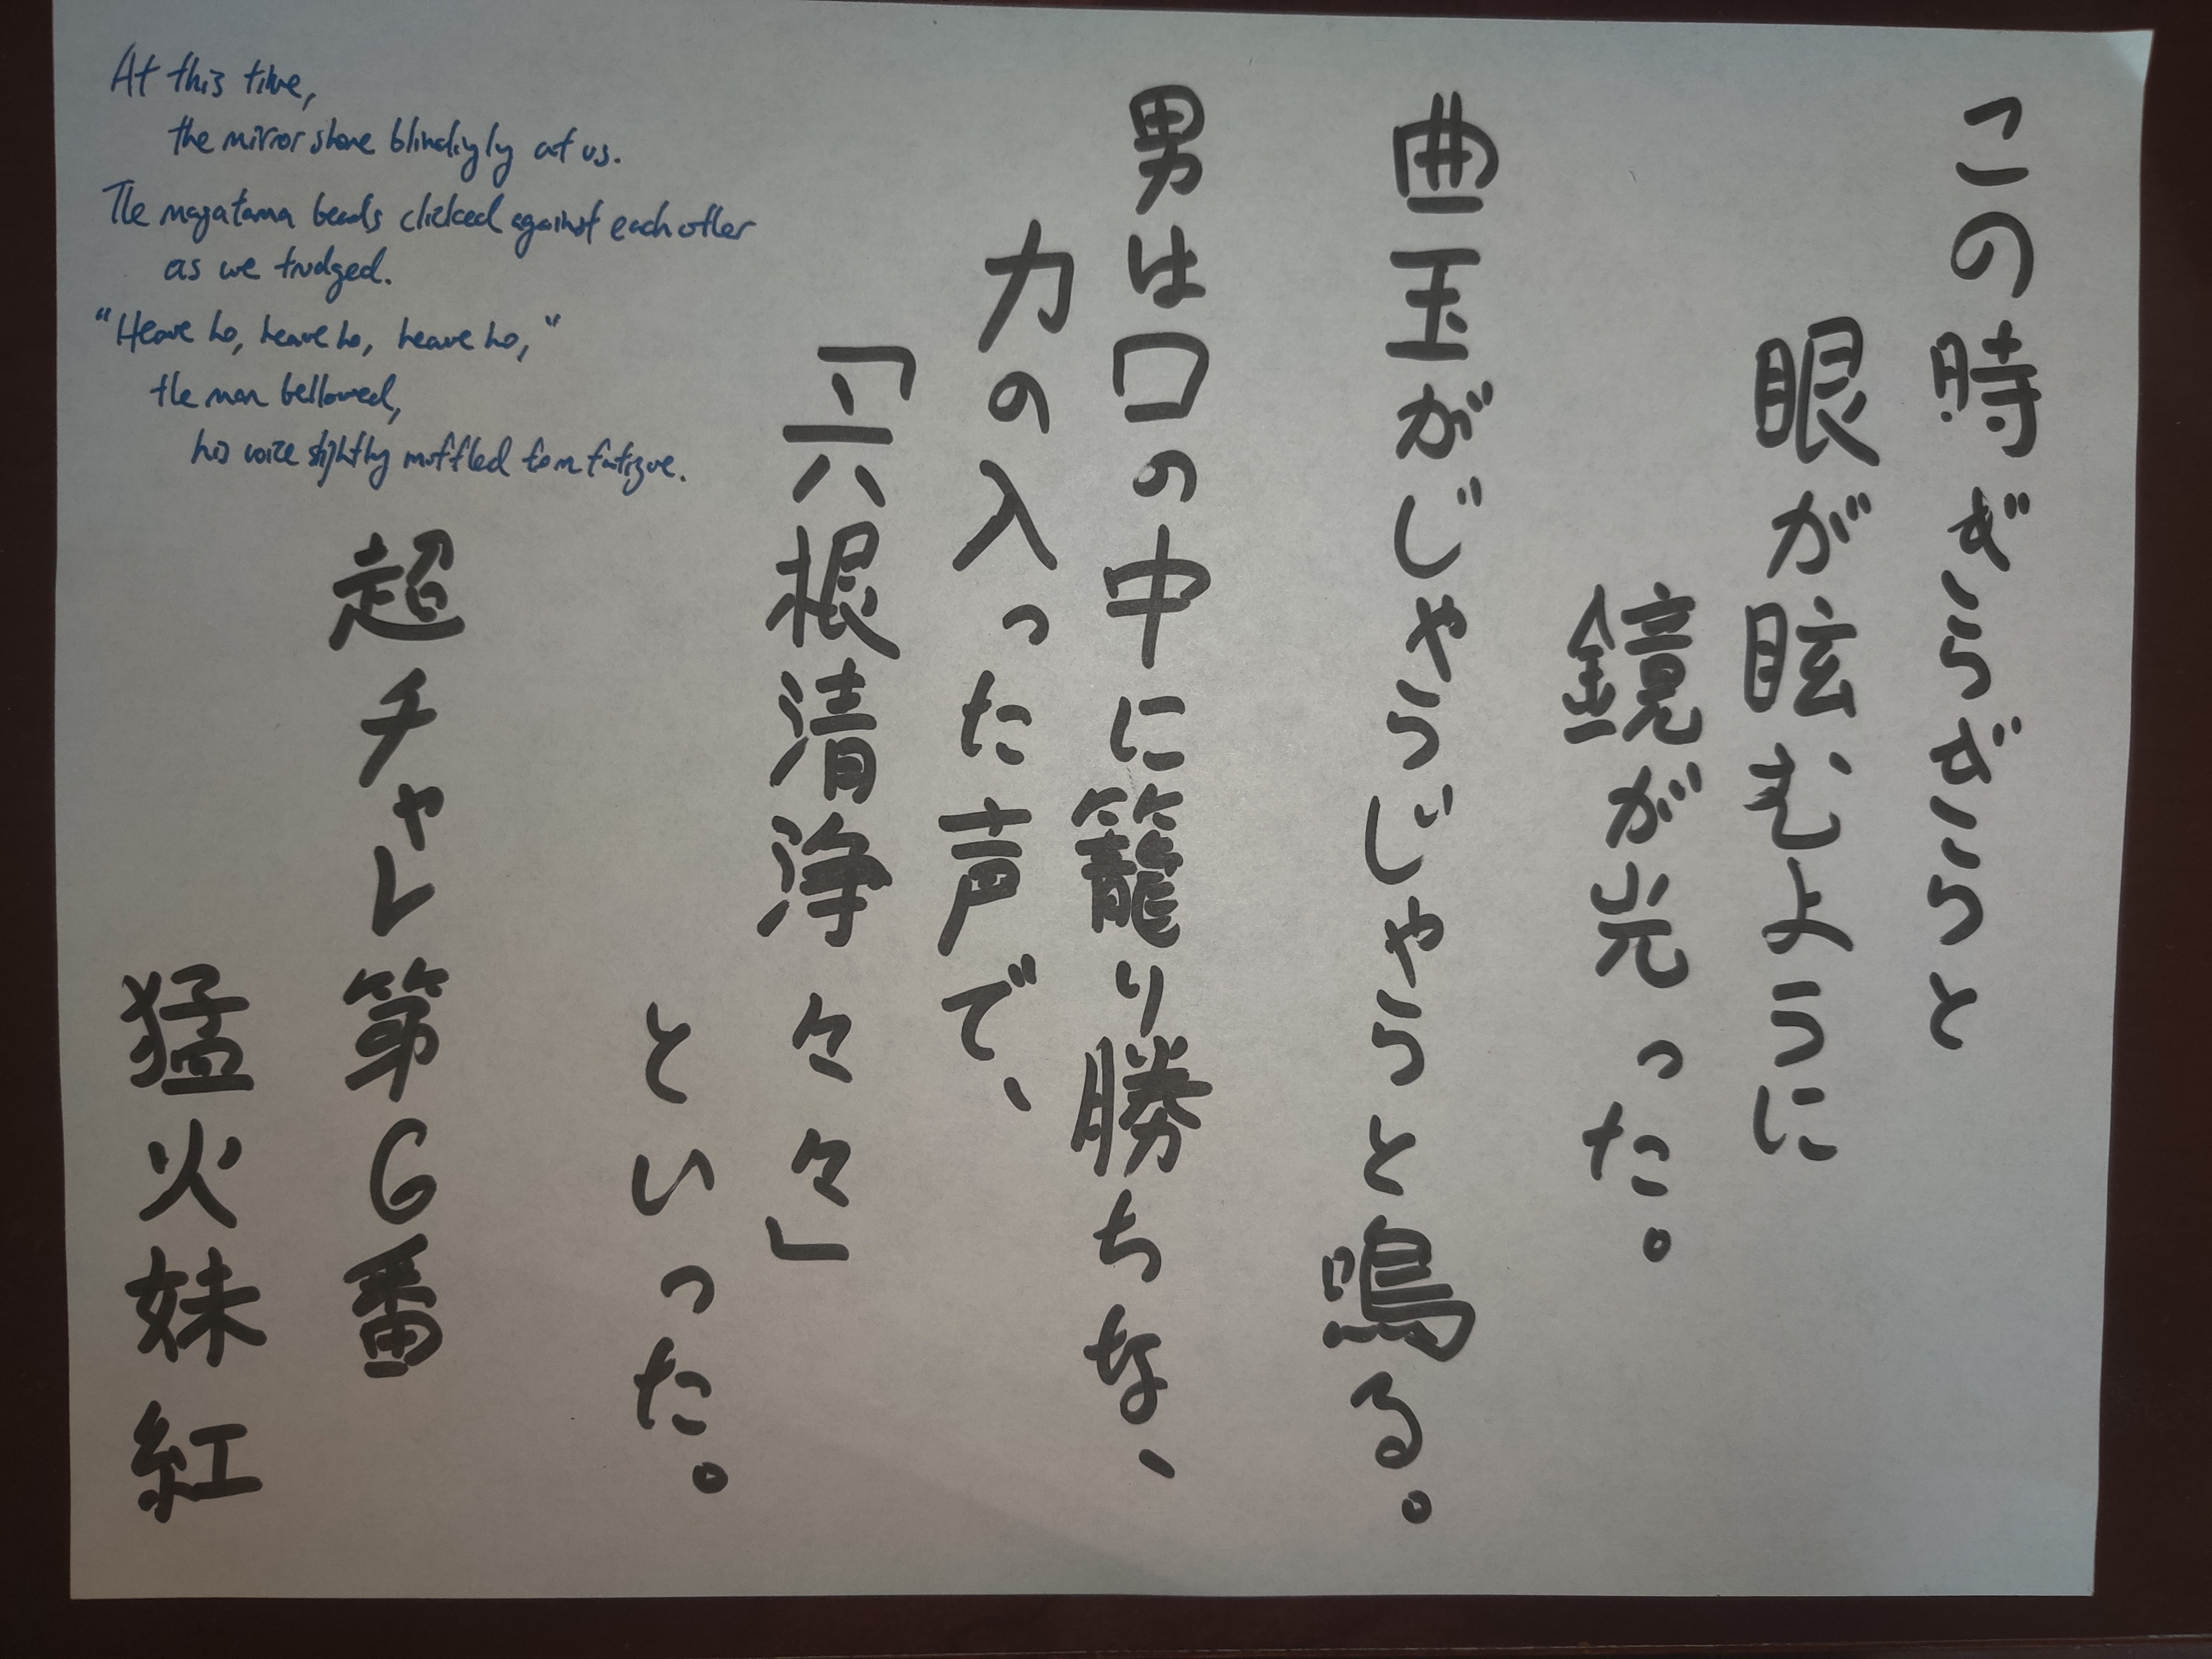 この時ぎらぎらと
眼が眩むように
鏡が光った。
曲玉がじゃらじゃらと鳴る。
男は口の中に籠り勝ちな、
力の入った声で、
「六根清浄々々」
といった。
超チャレ第6番
猛火妹紅
At this time,
the mirror shone blindingly at us.
The magatama beads clicked against each other
as we trudged.
"Heave ho, heave ho, heave ho,"
the man bellowed,
his voice slightly muffled from fatigue.